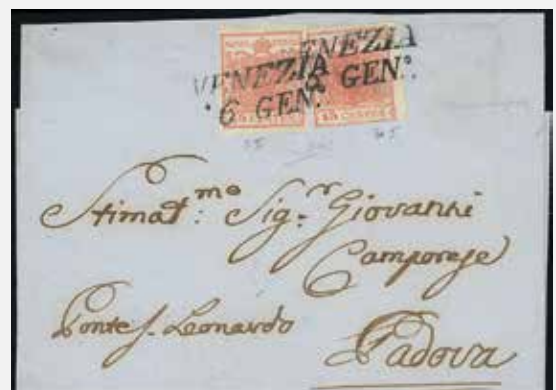 VENEZIA VENEZIA
6 GEN. 6 GEN.
15 CENTES
Stimat:mo Sig:r Giovanni
Camporese
Ponte S. Leonardo
Padova